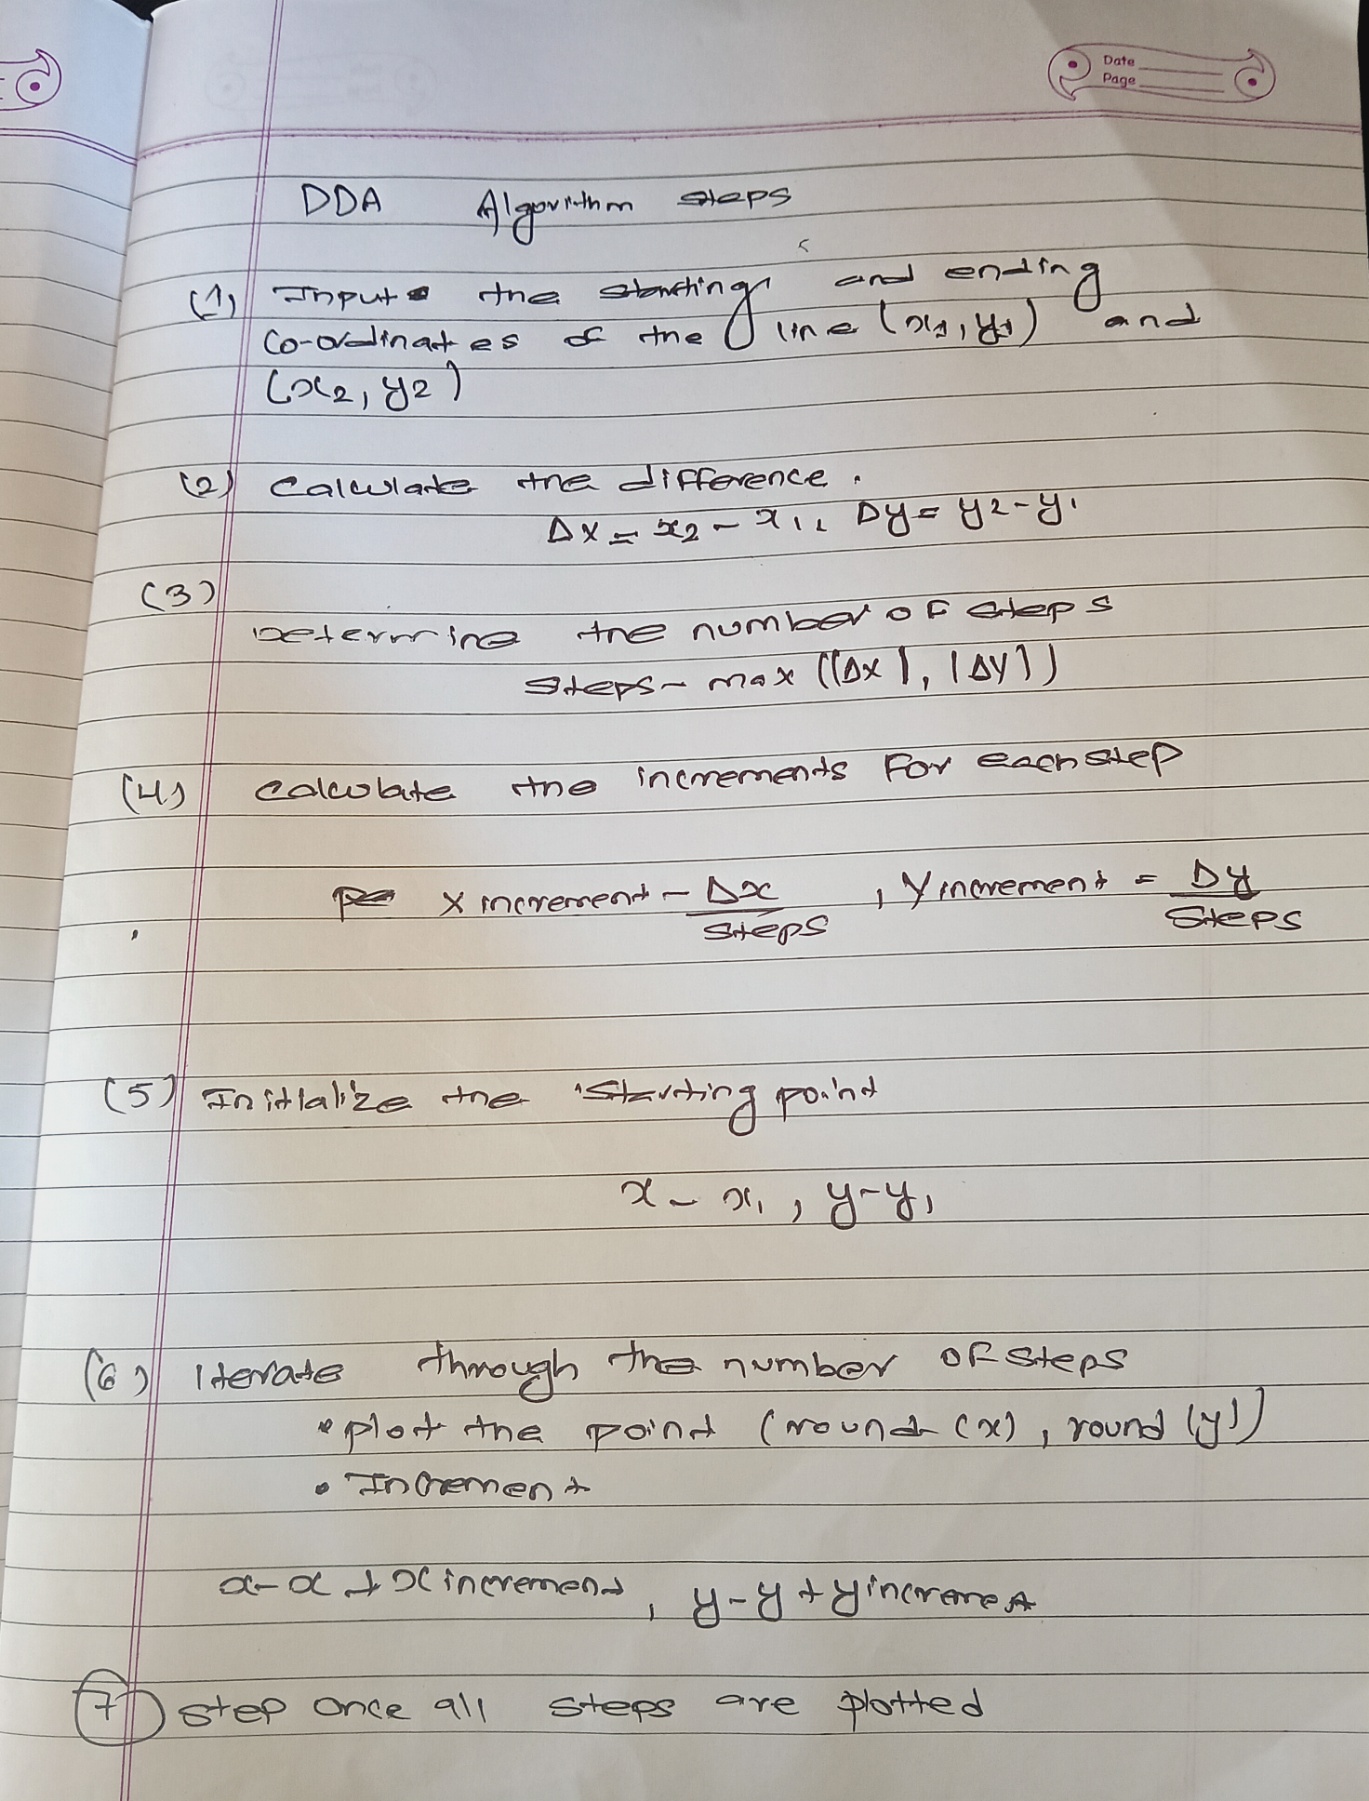 Date
Page
DDA Algorithm steps
(1) Input the starting and ending
co-ordinates of the line (x1, y1) and
(x2, y2)
(2) Calculate the difference.
Δx = x2 - x1, Δy = y2 - y1
(3)
Determine the number of steps
Steps - max (|Δx|, |Δy|)
(4) Calculate the increments for each step
X increment - Δx/Steps , Y increment = Δy/Steps
(5) Initialize the starting point
x - x1, y - y1
(6) Iterate through the number of steps
• plot the point (round (x), round (y))
• Increment
x - x + x increment, y - y + y increment
7) step once all steps are plotted